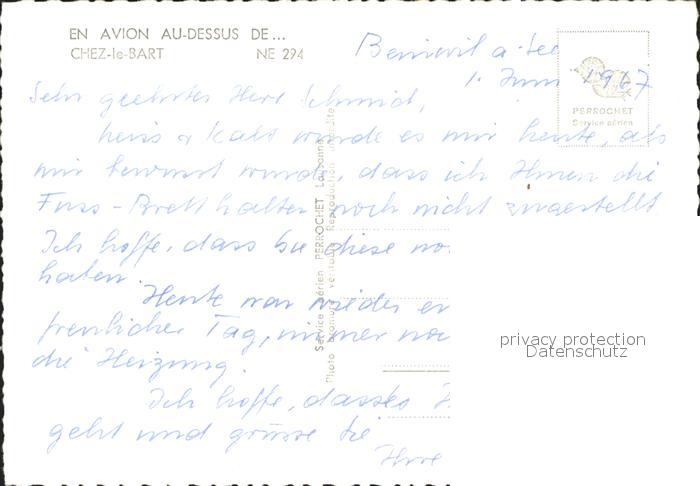 EN AVION AU-DESSUS DE...
CHEZ-le-BART NE 294
a. See
1. Juni 1967
PERROCHET
Service aérien
Sehr geehrter Herr Schmid,
heiss & kalt wurde es mir heute, als
mir bewusst wurde, dass ich Ihnen die
Fuss-Bretthalter noch nicht zugestellt
Ich hoffe, dass Sie diese no
haben.
Heute war wieder
freulicher Tag, immer noc
die Heizung.
Ich hoffe, dass es
geht und grüsse Sie
Ihre
Service aérien PERROCHET Lausanne
Photo bromure véritable Reproduction interdite
privacy protection
Datenschutz